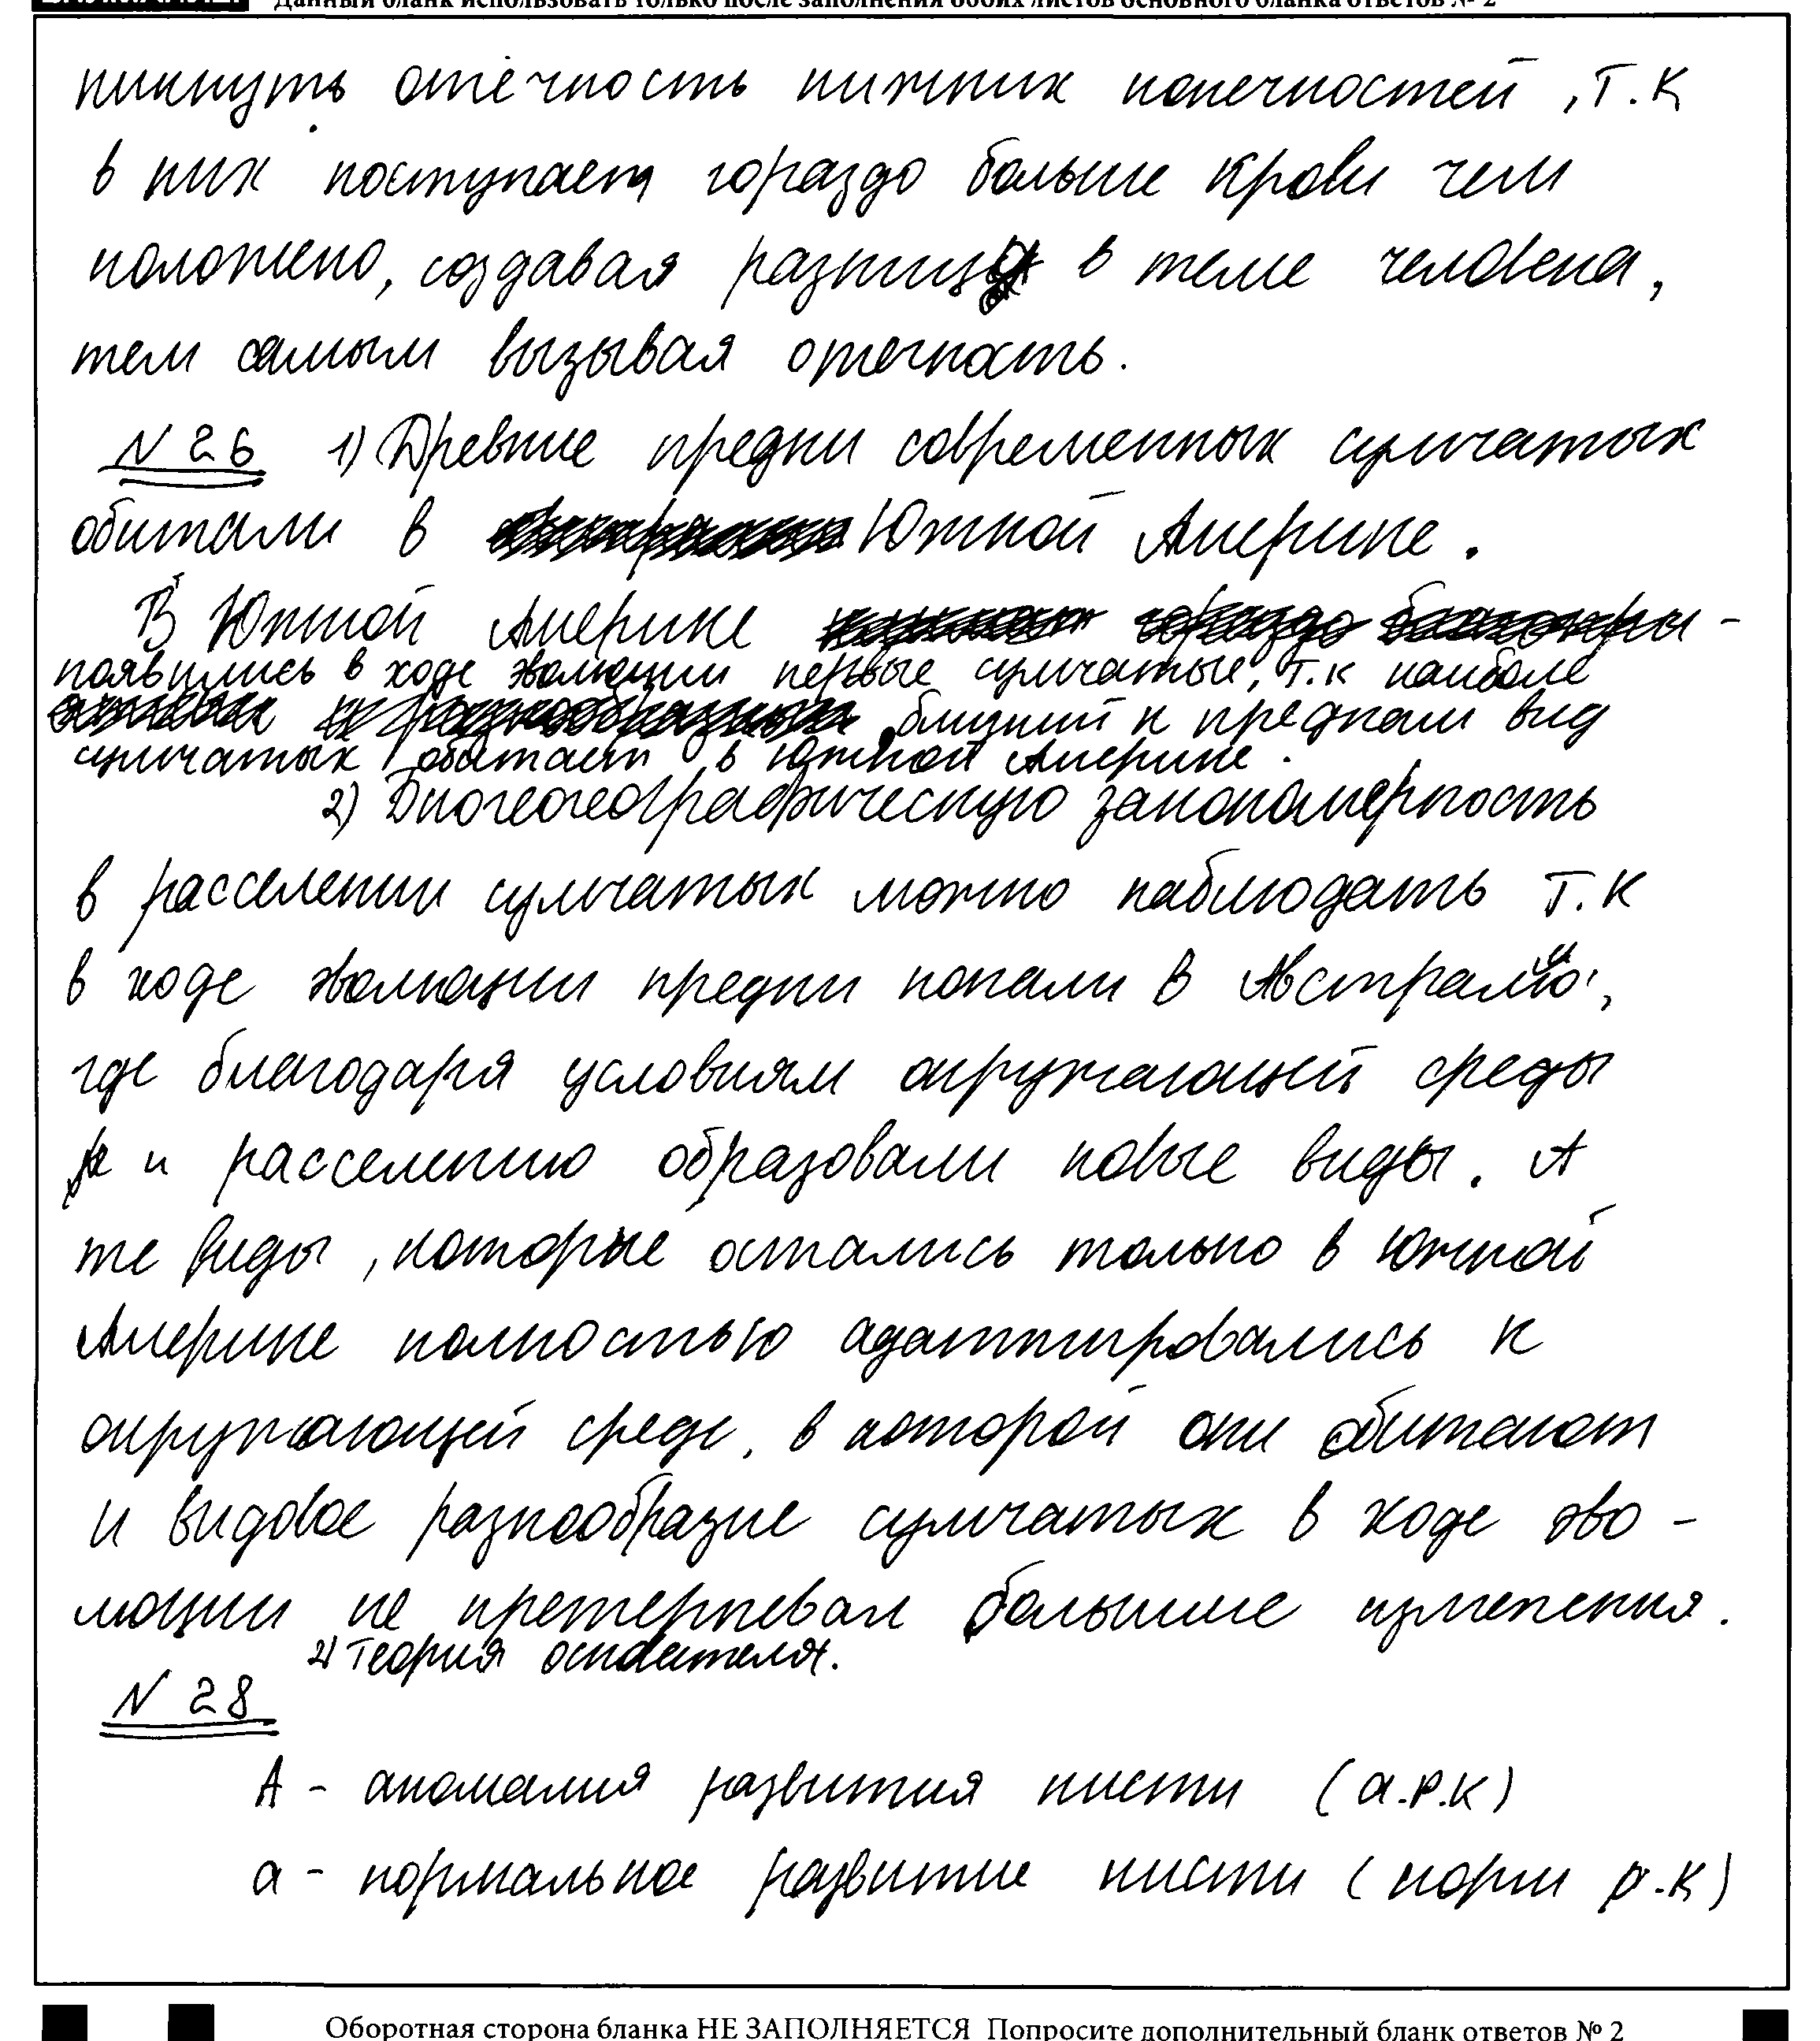 Данный бланк использовать только после заполнения обоих листов основного бланка ответов № 2
никнуть отечность нижних конечностей, т.к
в них поступает гораздо больше крови чем
положено, создавая разницу в теле человека,
тем самым вызывая отечность.
№ 26 1) Древние предки современных сумчатых
обитали в Южной Америке.
В Южной Америке
появились в ходе эволюции первые сумчатые, т.к наиболе
близкий к предкам вид
сумчатых обитает в Южной Америке.
2) Биогеогеографическую закономерность
в расселении сумчатых можно наблюдать т.к
в ходе эволюции предки попали в Австралию,
где благодаря условиям окружающей среды
и расселению образовали новые виды. А
те виды, которые остались только в Южной
Америке полностью адаптировались к
окружающей среде, в которой они обитают
и видовое разнообразие сумчатых в ходе эво-
люции не претерпевал большие изменения.
2) Теория основателя.
№ 28
А - аномалия развития кисти (а.р.к)
а - нормальное развитие кисти (норм р.к)
Оборотная сторона бланка НЕ ЗАПОЛНЯЕТСЯ Попросите дополнительный бланк ответов № 2